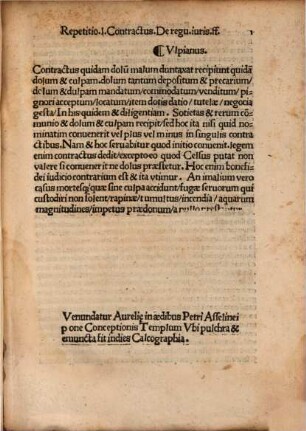 Repetitio.l.Contractus. De regu.iuris.ff.
¶ Vlpianus.
Contractus quidam dolū malum duntaxat recipiunt quidā
dolum & culpam.dolum tantum depositum & precarium/
dolum & culpam mandatum/commodatum/venditum/pi
gnori acceptum/locatum/item dotis datio/tutelæ/negocia
gesta/In his quidem & diligentiam. Sotietas & rerum cō
munio & dolum & culpam recipit/sed hoc ita nisi quid no
minatim conuenerit vel plus vel minus in singulis contra
ctibus. Nam & hoc seruabitur quod initio conuenit.legem
enim contractus dedit/excepto eo quod Celsus putat non
valere si conuenerit ne dolus præstetur. Hoc enim bonæ fi
dei iudicio contrarium est & ita vtimur. An imaliū vero
casus mortesq; quæ sine culpa accidunt/fugæ seruorum qui
custodiri non solent/rapinæ tumultus/incendia/aquarum
magnitudines/impetus prædonum/a nullo præstantur.
Venundatur Aurelię in ædibus Petri Asselinei
p one Conceptionis Templum Vbi pulchra &
emuncta fit indies Calcographia.